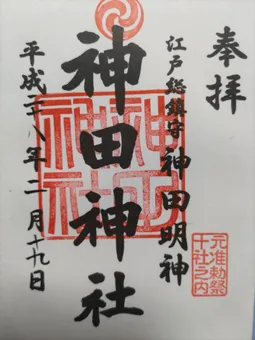 奉拝
江戸総鎮守 神田明神
神田神社
平成二十八年二月十九日
神田神社
元准勅祭
十社之内